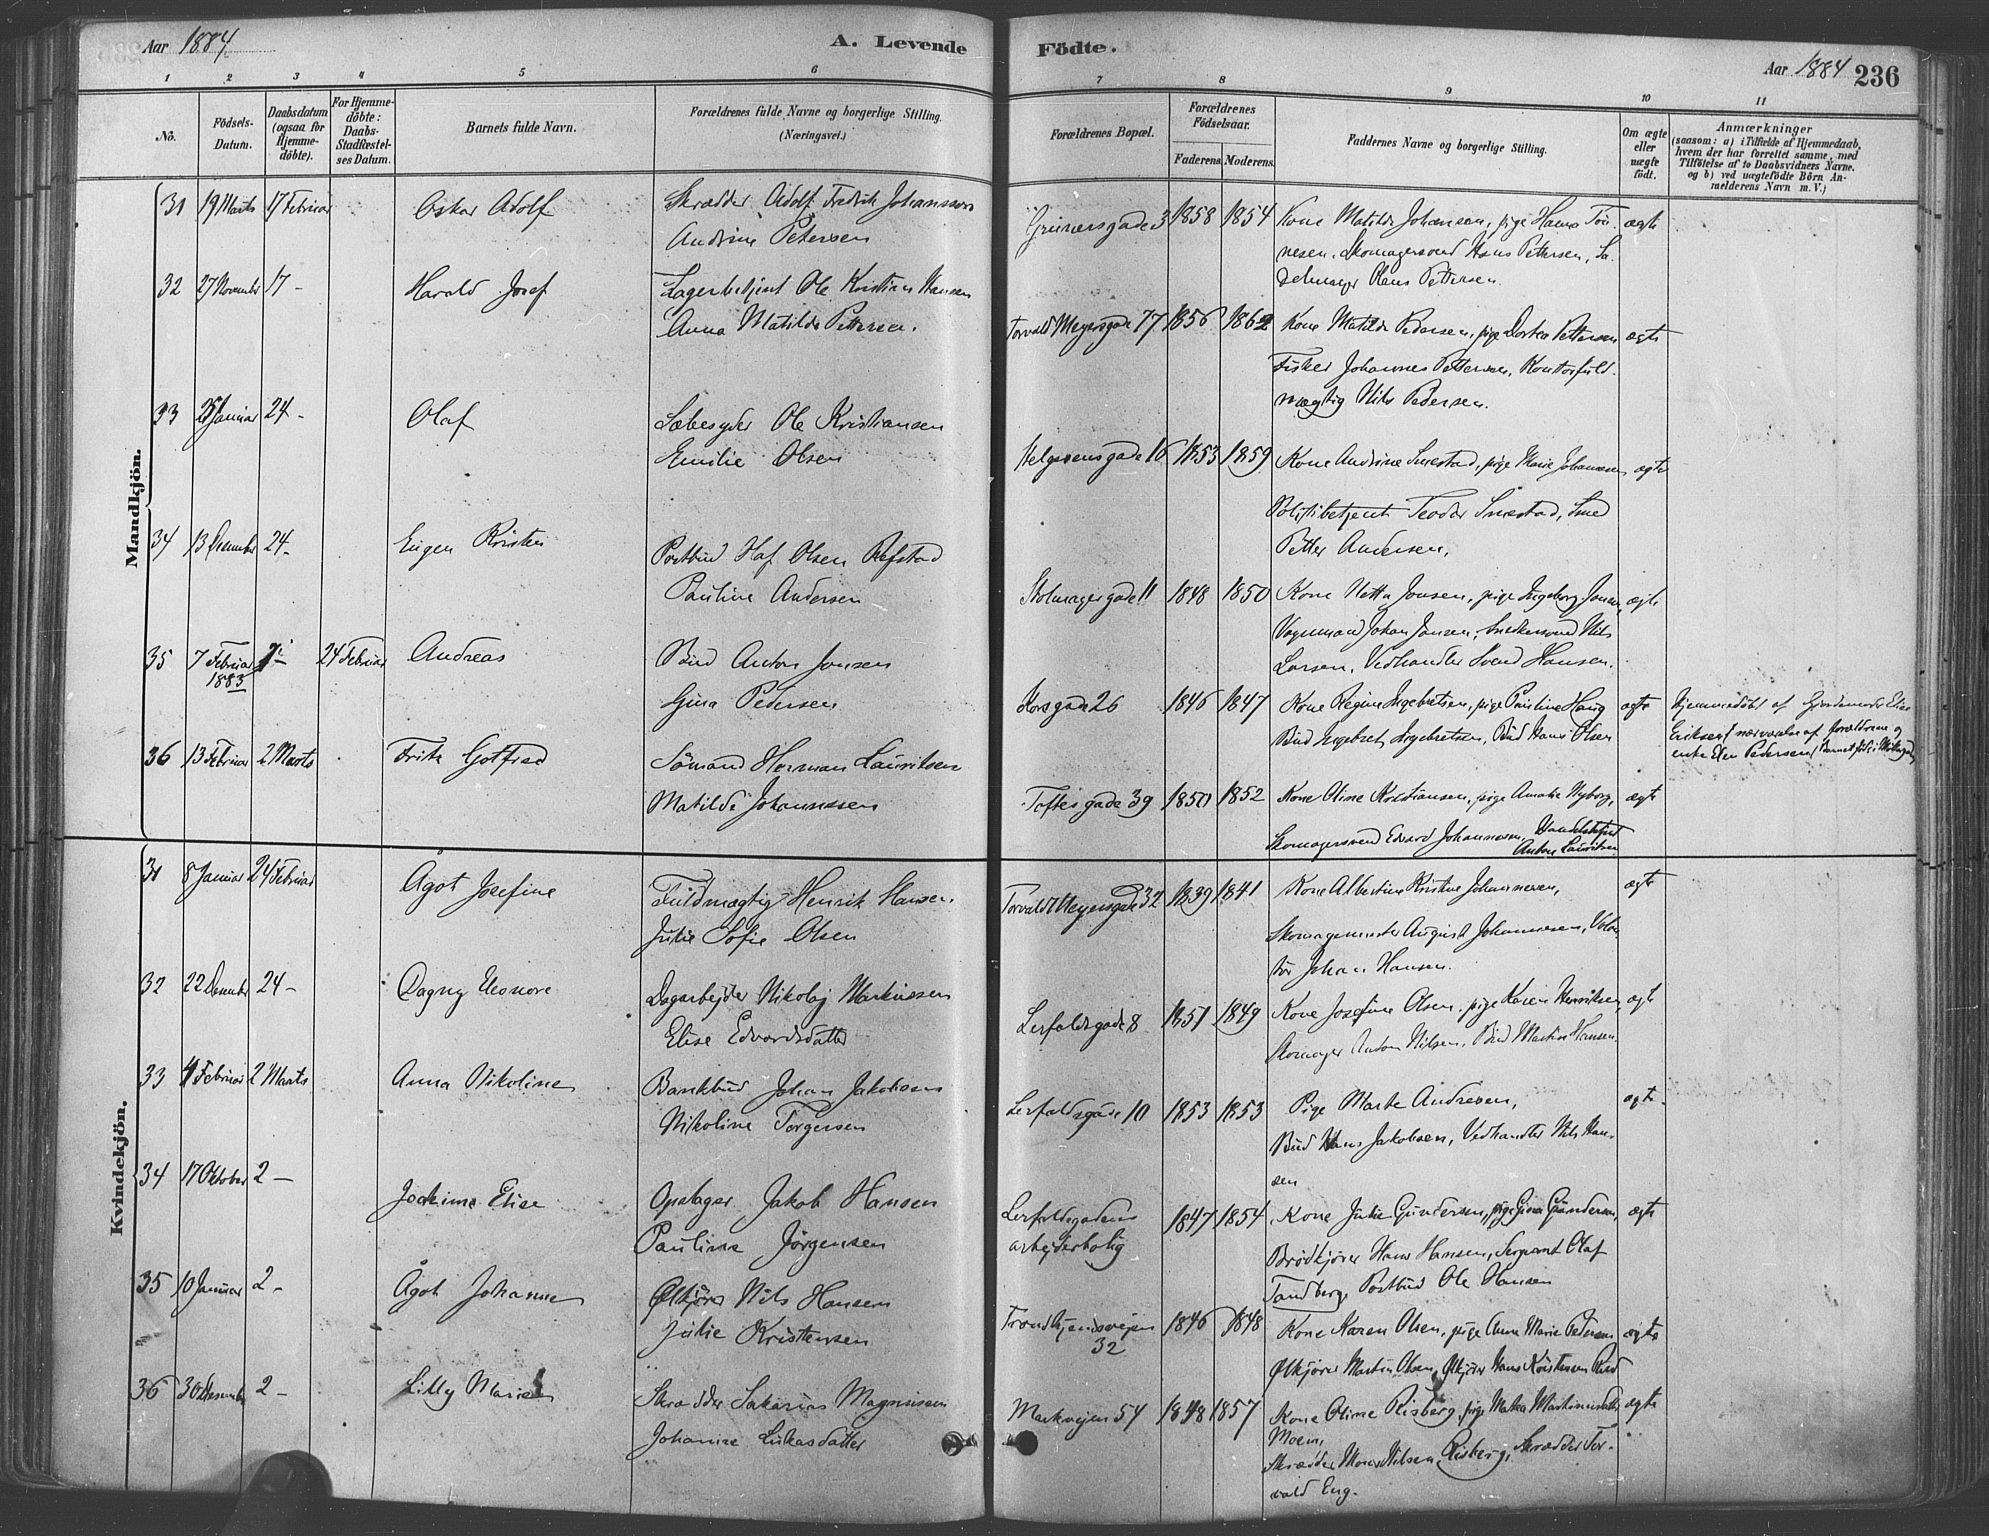 Aar 1884
A. Levende
Födte.
Aar 1884
236
1 2 3 4 5 6 7 8 9 10 11
No.
Födsels-Datum.
Daabsdatum (ogsaa for Hjemme-döbte).
For Hjemme-döbte: Daabs-Stadfæstel-ses Datum.
Barnets fulde Navn.
Forældrenes fulde Navne og borgerlige Stilling. (Næringsvei.)
Forældrenes Bopæl.
Forældrenes Födselsaar.
Faderens. Moderens.
Faddernes Navne og borgerlige Stilling.
Om ægte eller uægte födt.
Anmærkninger
(saasom: a) i Tilfælde af Hjemmedaab, hvem der har forrettet samme, med Tilföielse af to Daabsvidners Navne. og b) ved uægtefödte Börn An-melderens Navn m. V.)
Mandkjön.
31 19 Marts 17 Februar Oskar Adolf Skrædder Adolf Fredrik Johanssen
Andrine Petersen
Grünersgade 3 1858 1854 Kone Matilde Johansen, pige Hanna Tön-
nesen, Skomagersvend Hans Pettersen, Sa-
delmager Olaus Pettersen.
ægte
32 27 November 17 - Harald Josef Lagerbetjent Ole Kristian Hansen
Anna Matilde Pettersen.
Torvald Meyersgade 77 1856 1862 Kone Matilde Pedersen, pige Dortea Pettersen
Fisker Johannes Pettersen, Kontorfuld-
mægtig Nils Pedersen.
ægte
33 25 Januar 24 - Olaf Sæbesyder Ole Kristiansen
Emilie Olsen
Helgesensgade 16 1853 1859 Kone Andrine Smestad, pige Marie Johansen
Politibetjent Teodor Smestad, Smed
Petter Andersen,
ægte
34 13 Desember 24 - Eugen Kristen Postbud Olaf Olsen Refstad
Pauline Andersen
Stolmagergade 11 1848 1850 Kone Netta Jonsen, pige Ingeborg Jonsen,
Vognmand Johan Jonsen, Snedkersvend Nils
Larsen, Vedhandler Svend Hansen.
ægte
35 7 Februar 1883 24 Februar Andreas Bud Anton Jonsen
Gina Pedersen
Korsgade 26 1846 1847 Kone Regine Ingebretsen, pige Pauline Haug
Bud Ingebret Ingebretsen, Bud Hans Olsen
ægte
Hjemmedöbt af Gjordemoder Elise
Eriksen i nærværelse af forældrene og
enke Elen Pedersen
36 13 Februar 2 Marts Fritz Gotfred Sömand Herman Lauritsen
Matilde Johannesen
Toftesgade 39 1850 1852 Kone Oline Kristiansen, pige Amalie Nyborg,
Skomagersvend Edvard Johannesen, Handelsbetjent
Anton Lauritsen
ægte
Kvindekjön.
31 8 Januar 24 Februar Ågot Josefine Fuldmægtig Henrik Hansen.
Julie Sofie Olsen
Torvald Meyersgade 32 1839 1841 Kone Albertine Kristine Johannesen,
Skomagermester August Johannesen, Volon-
tör Johan Hansen.
ægte
32 22 Desember 24 - Dagny Leonore Dagarbejder Nikolaj Markussen
Elise Edvardsdatter
Lerfaldsgade 8 1851 1849 Kone Josefine Olsen, pige Karen Henriksen,
Skomager Anton Nilsen, Bud Martin Hansen.
ægte
33 4 Februar 2 Marts Anna Nikoline Bankbud Johan Jakobsen
Nikoline Torgersen
Lerfaldsgade 10 1853 1853 Pige Marte Andresen,
Bud Hans Jakobsen, Vedhandler Nils Han-
sen
ægte
34 17 Oktober 2 - Joakime Elise Opslager Jakob Hansen
Pauline Jörgensen
Lerfaldsgadens
arbejderbolig
1847 1854 Kone Julie Gundersen, pige Gina Gundersen,
Brödkjörer Hans Hansen, Sergeant Olaf
Tandberg, Postbud Ole Hansen
ægte
35 10 Januar 2 - Ågot Johanne Ölkjörer Nils Hansen
Julie Kristensen
Trondhjemsvejen
32
1846 1848 Kone Karen Olsen, pige Anne Marie Pedersen
Ölkjörer Martin Olsen, Ölkjörer Hans Kristensen
ægte
36 30 Desember 2 - Lilly Marie Skrædder Sakarias Magnussen
Johanne Lukasdatter
Markvejen 54 1848 1857 Kone Oline Risberg, pige Matea Martinusdatter
Moen,
Skrædder Mons Nilsen Risberg, Skrædder Tor-
vald Eng.
ægte